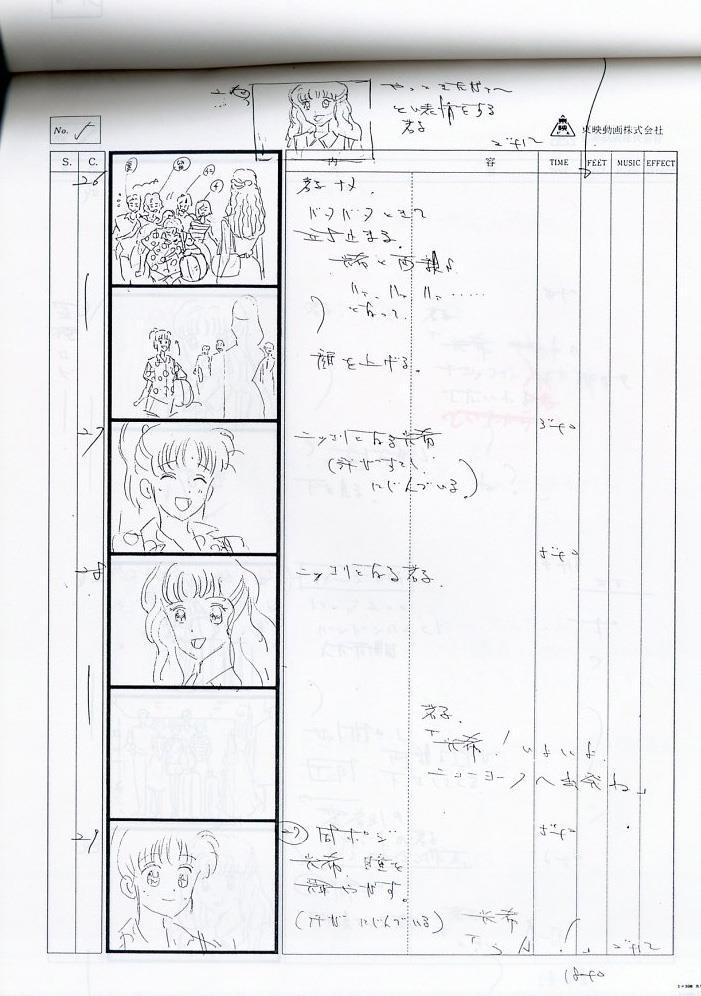 やっときたか〜
という表情をする
君子
2+12
No.
東映動画株式会社
S. C. 内容 TIME FEET MUSIC EFFECT
26
君子ナメ、
バタバタときて
立ち止まる。
光希と両親が
ハァ、ハァ、ハァ……
となって、
顔を上げる。
27
ニッコリとなる光希
3+0
(汗がすこし
にじんでいる。)
28
ニッコリとなる君子
5+0
君子
「光希!いよいよ
ニューヨークへ出発ね」
29
27 同ポジ
光希、瞳を
輝やかす。
(汗がにじんでいる)
光希
「うん!」
2+12
18+0